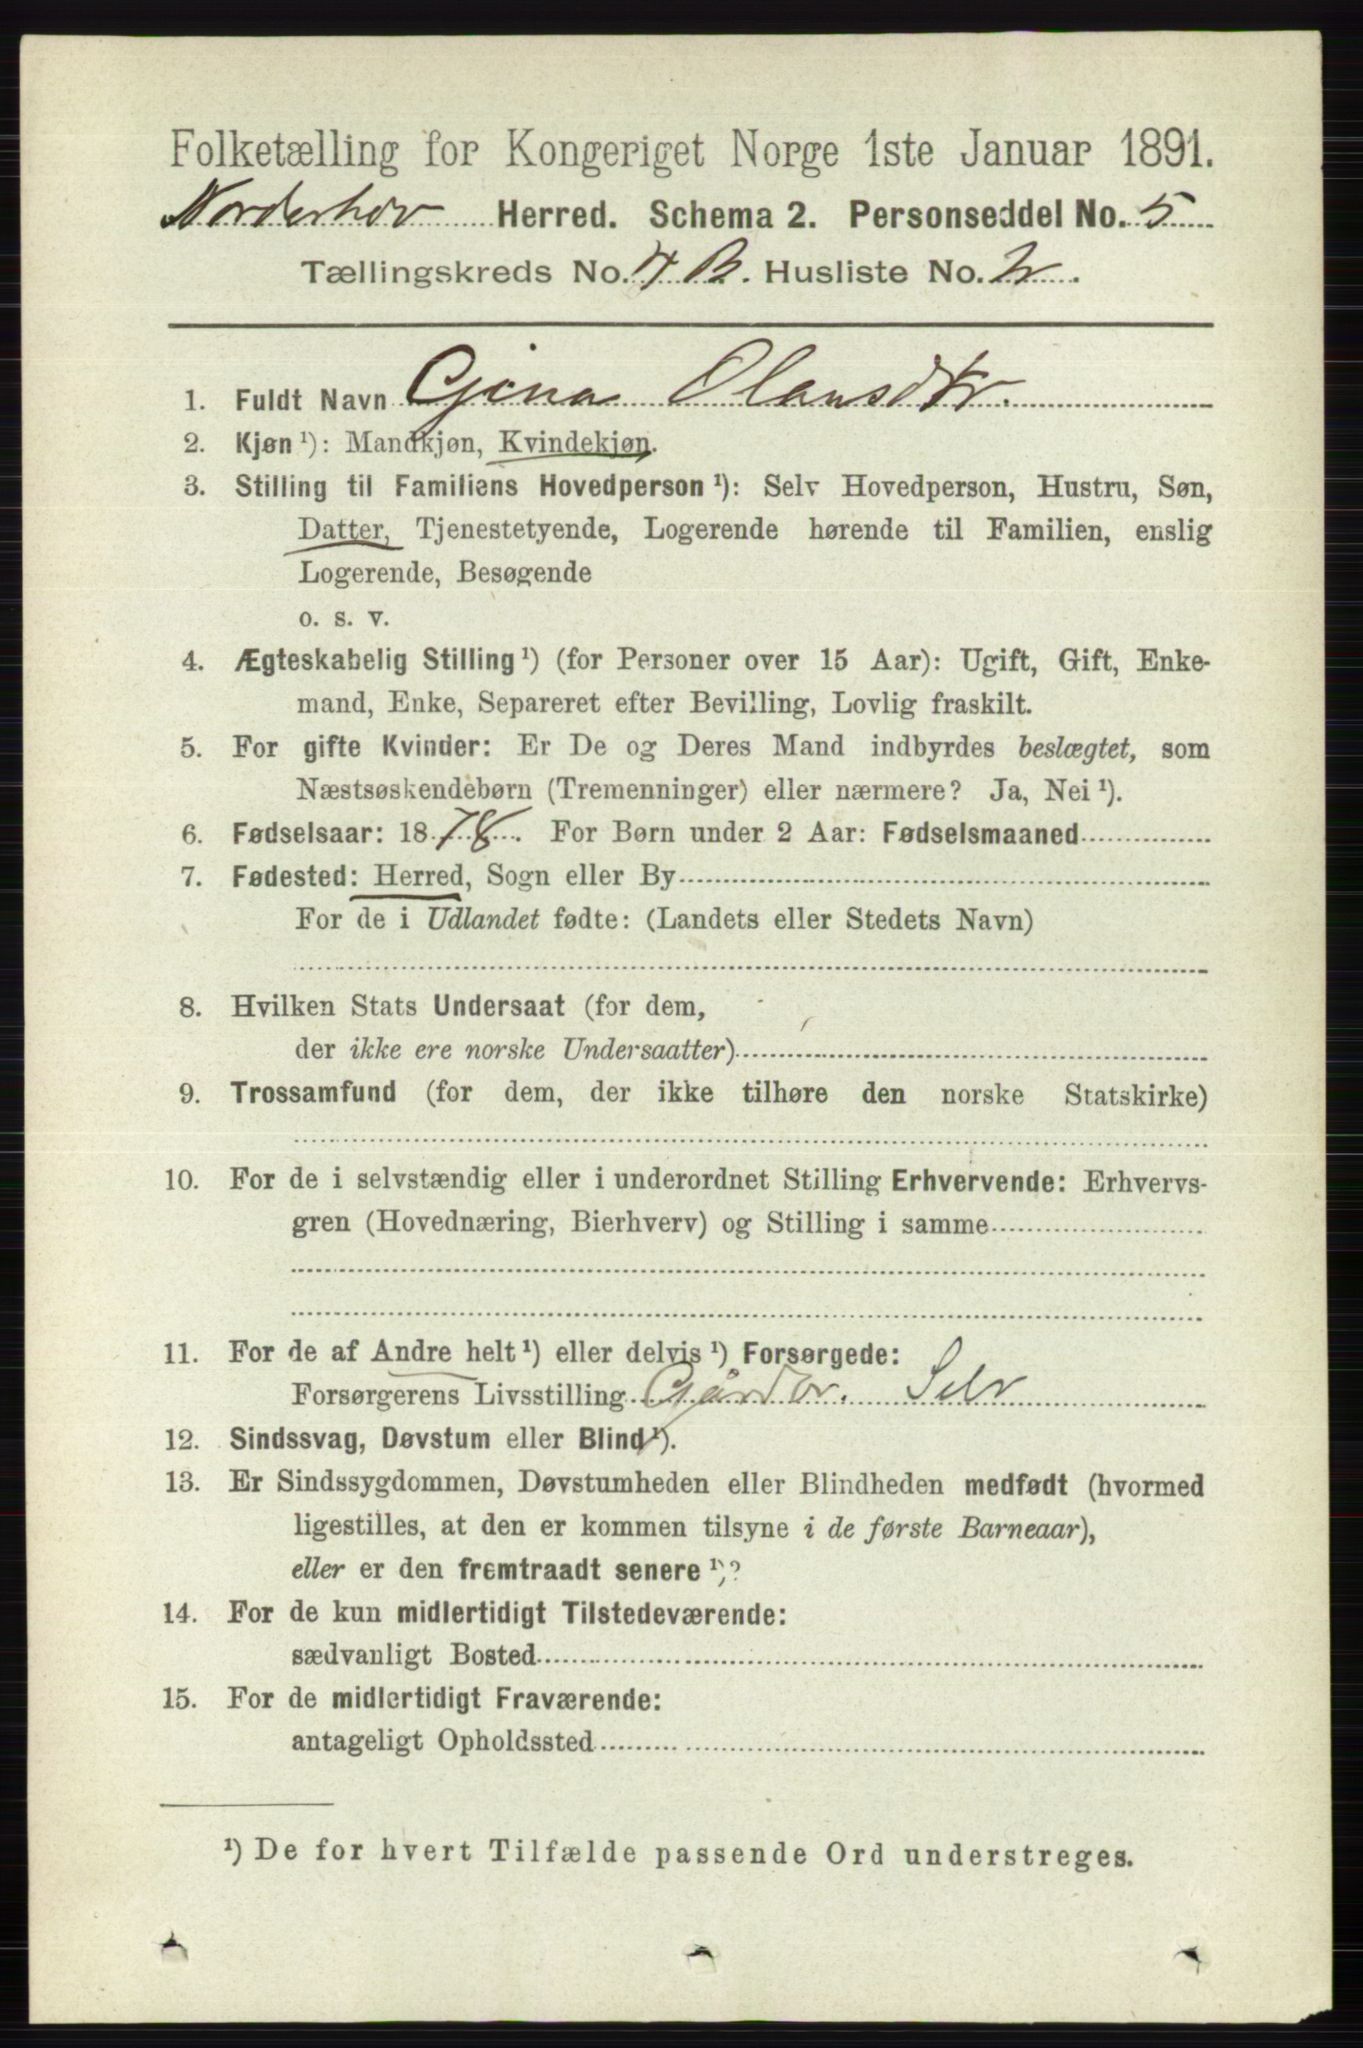 Folketælling for Kongeriget Norge 1ste Januar 1891.
Norderhov Herred. Schema 2. Personseddel No. 5
Tællingskreds No. 4 B. Husliste No. 2.
1. Fuldt Navn Gjina Olausdtr.
2. Kjøn ¹): Mandkjøn, Kvindekjøn.
3. Stilling til Familiens Hovedperson ¹): Selv Hovedperson, Hustru, Søn,
Datter, Tjenestetyende, Logerende hørende til Familien, enslig
Logerende, Besøgende
o. s. v.
4. Ægteskabelig Stilling ¹) (for Personer over 15 Aar): Ugift, Gift, Enke-
mand, Enke, Separeret efter Bevilling, Lovlig fraskilt.
5. For gifte Kvinder: Er De og Deres Mand indbyrdes beslægtet, som
Næstsøskendebørn (Tremenninger) eller nærmere? Ja, Nei ¹).
6. Fødselsaar: 1878. For Børn under 2 Aar: Fødselsmaaned
7. Fødested: Herred, Sogn eller By
For de i Udlandet fødte: (Landets eller Stedets Navn)
8. Hvilken Stats Undersaat (for dem,
der ikke ere norske Undersaatter)
9. Trossamfund (for dem, der ikke tilhøre den norske Statskirke)
10. For de i selvstændig eller i underordnet Stilling Erhvervende: Erhvervs-
gren (Hovednæring, Bierhverv) og Stilling i samme
11. For de af Andre helt ¹) eller delvis ¹) Forsørgede:
Forsørgerens Livsstilling Gårdbr. Selv
12. Sindssvag, Døvstum eller Blind ¹).
13. Er Sindssygdommen, Døvstumheden eller Blindheden medfødt (hvormed
ligestilles, at den er kommen tilsyne i de første Barneaar),
eller er den fremtraadt senere ¹)?
14. For de kun midlertidigt Tilstedeværende:
sædvanligt Bosted
15. For de midlertidigt Fraværende:
antageligt Opholdssted
¹) De for hvert Tilfælde passende Ord understreges.